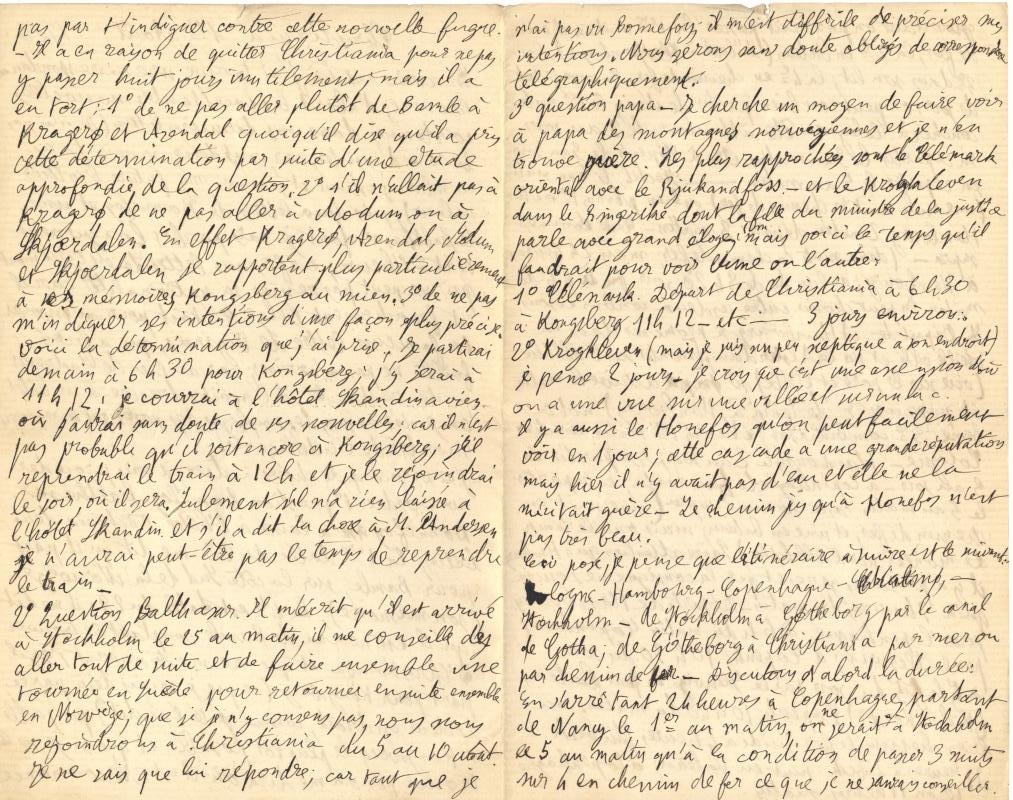 pas par t'indigner contre cette nouvelle fugue.
- Il a eu raison de quitter Christiania pour ne pas
y passer huit jours inutilement; mais il a
eu tort: 1° de ne pas aller plutôt de Bamle à
Kragerø et Arendal quoiqu'il dise qu'il a pris
cette détermination par suite d'une étude
approfondie de la question, 2° s'il n'allait pas à
Kragerø de ne pas aller à Modum ou à
Skjœrdalen. En effet Kragerø, Arendal, Modum
et Skjoerdalen se rapportent plus particulièrement
à ses mémoires, Kongsberg au mien. 3° de ne pas
m'indiquer ses intentions d'une façon plus précise.
Voici la détermination que j'ai prise. Je partirai
demain à 6h30 pour Kongsberg; j'y serai à
11h12; je courrai à l'hôtel Skandinavien
où j'aurai sans doute de ses nouvelles; car il n'est
pas probable qu'il soit encore à Kongsberg; je
reprendrai le train à 12h et je le rejoindrai
le soir, où il sera, seulement s'il n'a rien laissé à
l'hôtel Skandin. et s'il a dit la chose à M. Andersen
je n'aurai peut-être pas le temps de reprendre
le train -
2° Question Balthasar. Il m'écrit qu'il est arrivé
à Stockholm le 25 au matin, il me conseille d'y
aller tout de suite et de faire ensemble une
tournée en Suède pour retourner ensuite ensemble
en Norwège; que si je n'y consens pas, nous nous
rejoindrons à Christiania du 5 au 10 août
Je ne sais que lui répondre, car tant que je
n'ai pas vu Bonnefoy il m'est difficile de préciser mes
intentions. Nous serons sans doute obligés de correspondre
télégraphiquement.
3° question papa - Je cherche un moyen de faire voir
à papa des montagnes norvégiennes et je n'en
trouve guère. Les plus rapprochées sont le Télémark
oriental avec le Rjukandfoss - et le Krogkleven
dans le Ringeriké dont la fille du ministre de la justice
parle avec grand éloge; mais voici le temps qu'il
faudrait pour voir l'une ou l'autre:
1° Télémark. Départ de Christiania à 6h30
à Kongsberg 11h12 - etc - 3 jours environ.
2° Krogkleven (mais je suis un peu sceptique à son endroit)
je pense 2 jours - je crois que c'est une ascension d'où
on a une vue sur une vallée et sur un lac.
Il y a aussi le Honefos qu'on peut facilement
voir en 1 jour; cette cascade a une grande réputation
mais hier il n'y avait pas d'eau et elle ne la
méritait guère - Le chemin jusqu'à Honefos n'est
pas très beau.
Ceci posé, je pense que l'itinéraire à suivre est le suivant:
Cologne - Hambourg - Copenhague -
Stockholm - de Stockholm à Gotheborg par le canal
de Gotha; de Götheborg à Christiania par mer ou
par chemin de fer - Discutons d'abord la durée:
En s'arrêtant 24 heures à Copenhague, partant
de Nancy le 1er au matin, on ne serait à Stockholm
le 5 au matin qu'à la condition de passer 3 nuits
sur 4 en chemin de fer ce que je ne saurais conseiller.